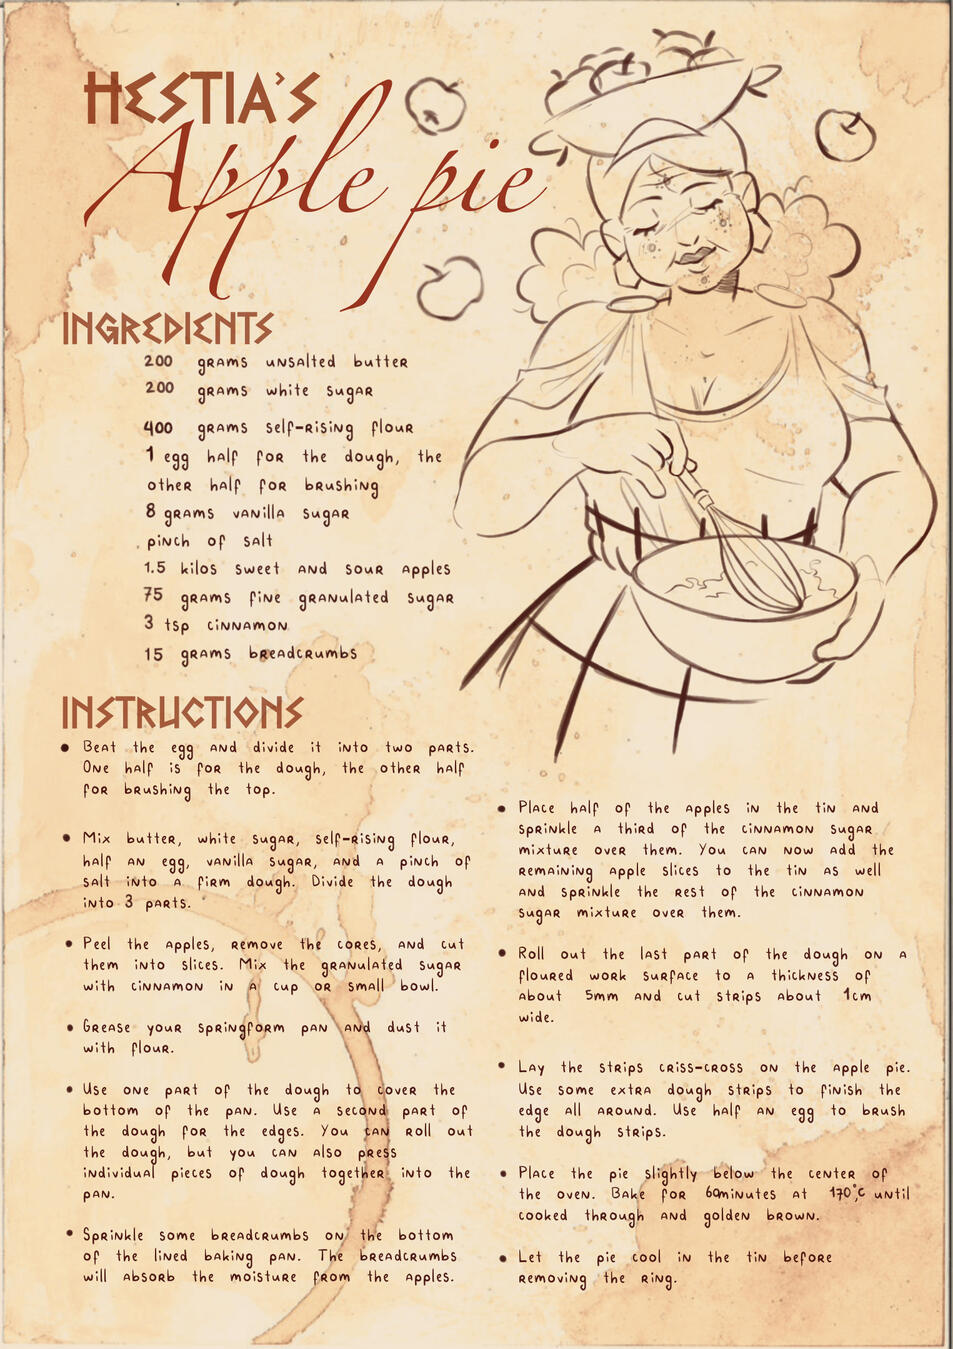 HESTIA'S
Apple pie
INGREDIENTS
200 grams unsalted butter
200 grams white sugar
400 grams self-rising flour
1 egg half for the dough, the
other half for brushing
8 grams vanilla sugar
pinch of salt
1.5 kilos sweet and sour apples
75 grams fine granulated sugar
3 tsp cinnamon
15 grams breadcrumbs
INSTRUCTIONS
• Beat the egg and divide it into two parts.
One half is for the dough, the other half
for brushing the top.
• Mix butter, white sugar, self-rising flour,
half an egg, vanilla sugar, and a pinch of
salt into a firm dough. Divide the dough
into 3 parts.
• Peel the apples, remove the cores, and cut
them into slices. Mix the granulated sugar
with cinnamon in a cup or small bowl.
• Grease your springform pan and dust it
with flour.
• Use one part of the dough to cover the
bottom of the pan. Use a second part of
the dough for the edges. You can roll out
the dough, but you can also press
individual pieces of dough together into the
pan.
• Sprinkle some breadcrumbs on the bottom
of the lined baking pan. The breadcrumbs
will absorb the moisture from the apples.
• Place half of the apples in the tin and
sprinkle a third of the cinnamon sugar
mixture over them. You can now add the
remaining apple slices to the tin as well
and sprinkle the rest of the cinnamon
sugar mixture over them.
• Roll out the last part of the dough on a
floured work surface to a thickness of
about 5mm and cut strips about 1cm
wide.
• Lay the strips criss-cross on the apple pie.
Use some extra dough strips to finish the
edge all around. Use half an egg to brush
the dough strips.
• Place the pie slightly below the center of
the oven. Bake for 60minutes at 170°C until
cooked through and golden brown.
• Let the pie cool in the tin before
removing the ring.